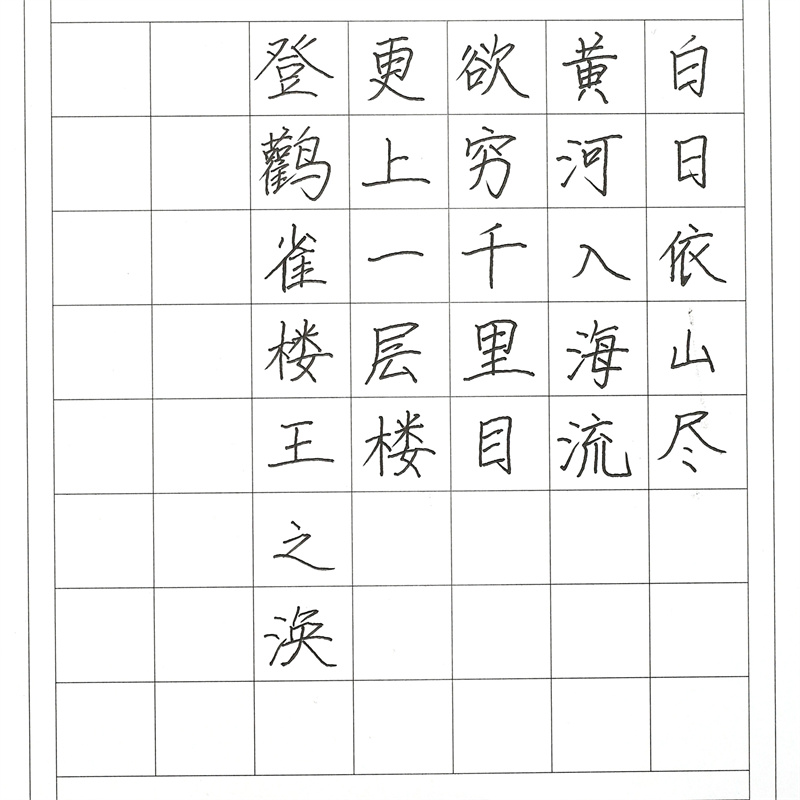 白日依山尽
黄河入海流
欲穷千里目
更上一层楼
登鹳雀楼王之涣